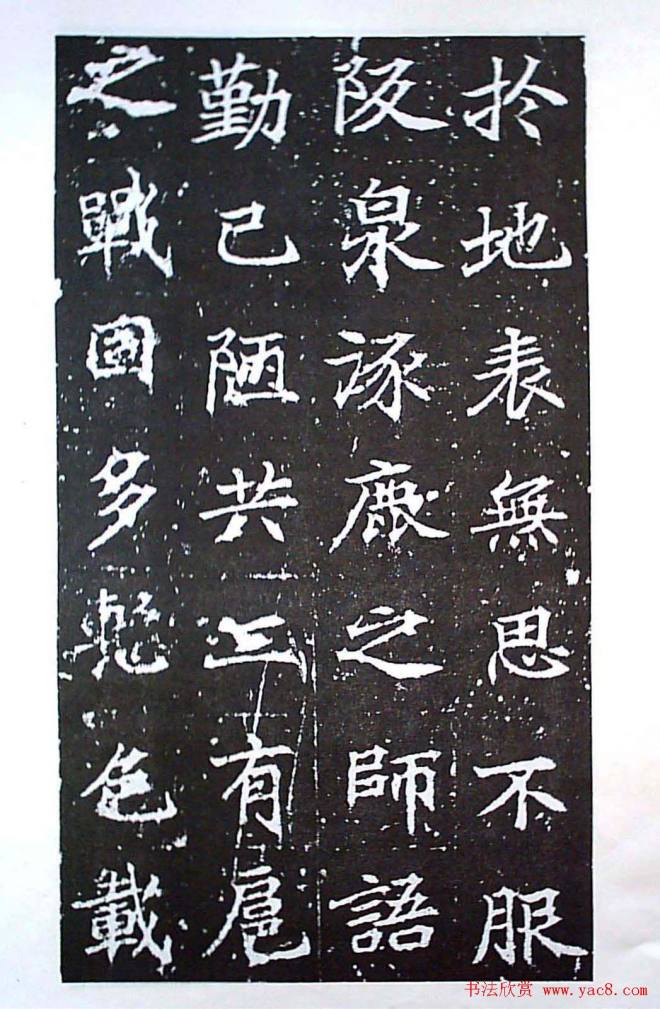 於地表無思不服
阪泉涿鹿之師語
勤己陋共工有扈
之戰國多乾色載
书法欣赏 www.yac8.com